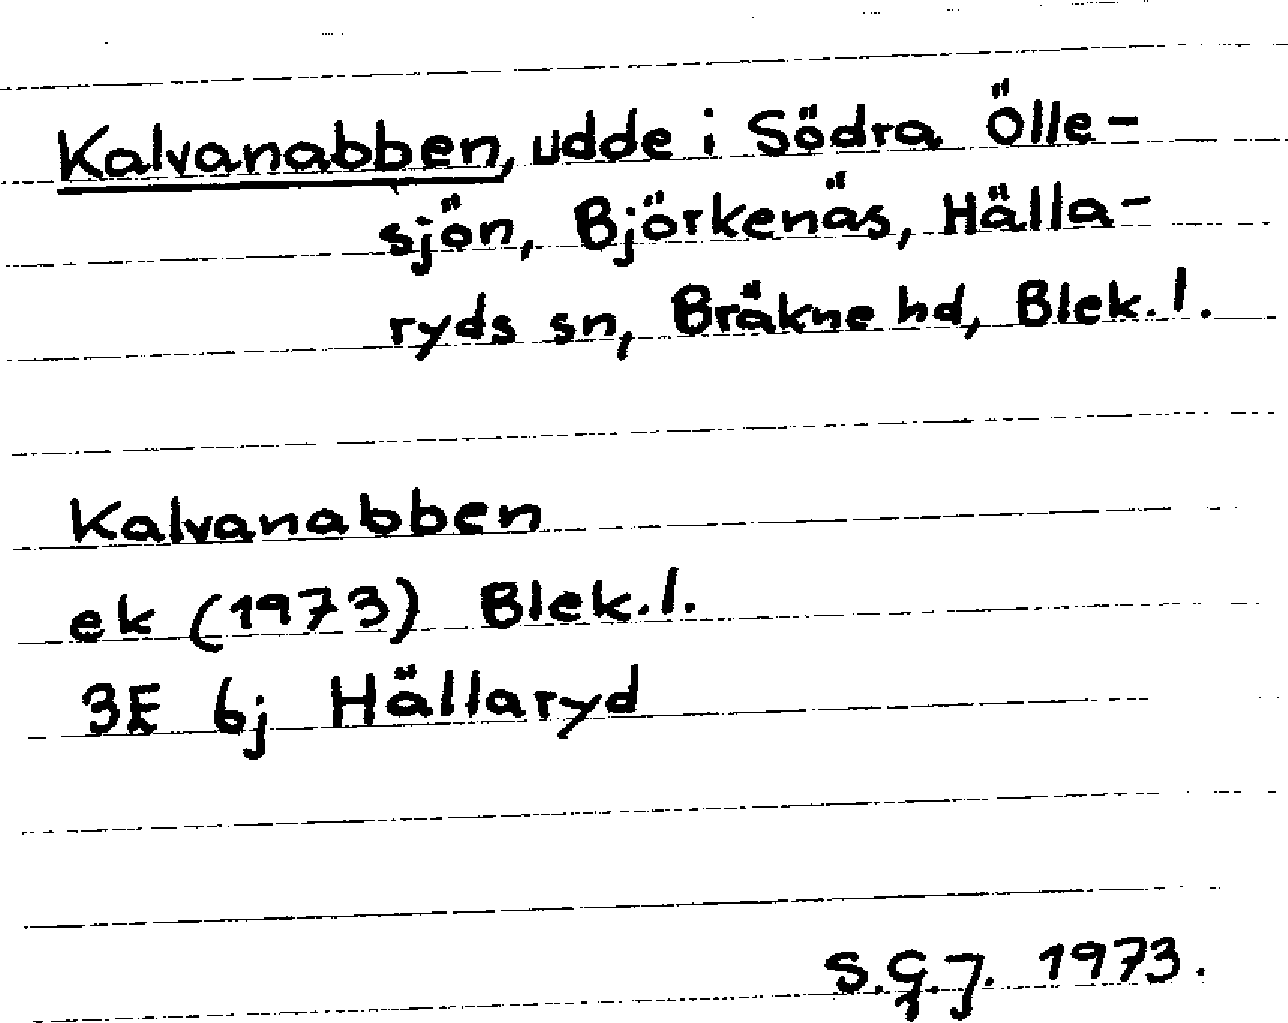 Kalvanabben, udde i Södra Ölle-
sjön, Björkenäs, Hälla-
ryds sn, Bräkne hd, Blek. l.
Kalvanabben
ek (1973) Blek. l.
3E 6j Hällaryd
S.G.J. 1973.